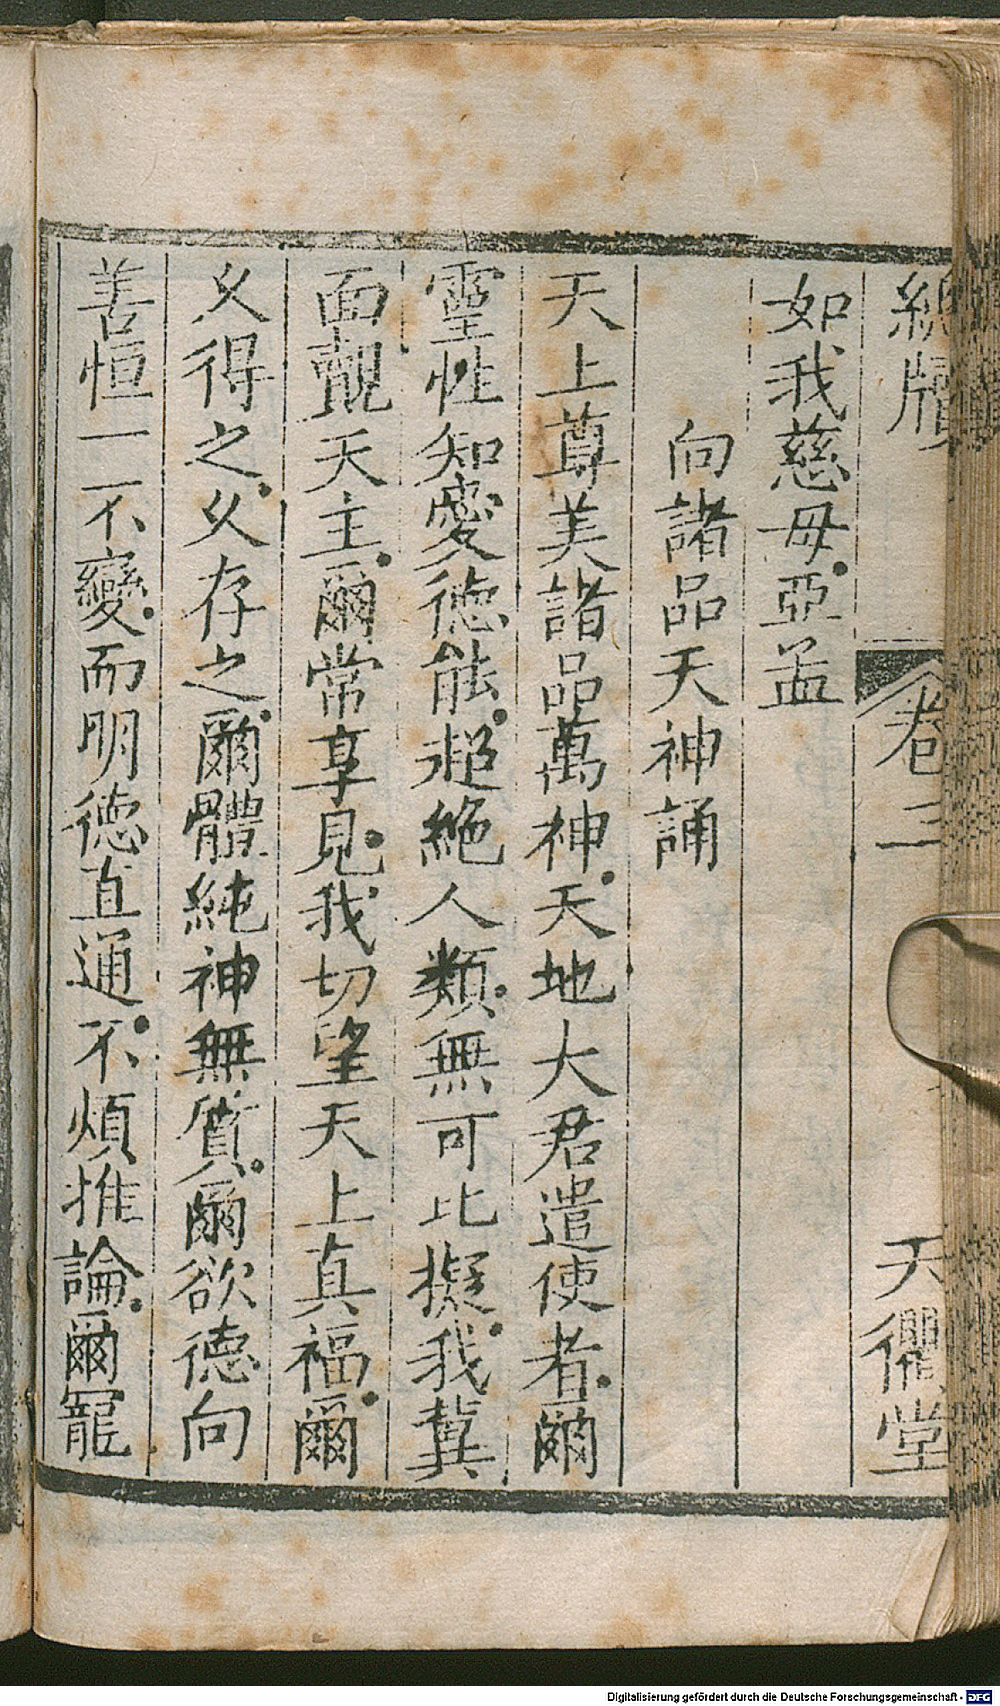 總牘 卷三 天衢堂
如我慈母亞孟
向諸品天神誦
天上尊美諸品萬神天地大君遣使者爾
靈性知愛德能超絶人類無可比擬我冀
面覿天主爾常享見我切望天上真福爾
乆得之乆存之爾體純神無質爾欲德向
善恒一不變而明德直通不煩推論爾寵
Digitalisierung gefördert durch die Deutsche Forschungsgemeinschaft - DFG